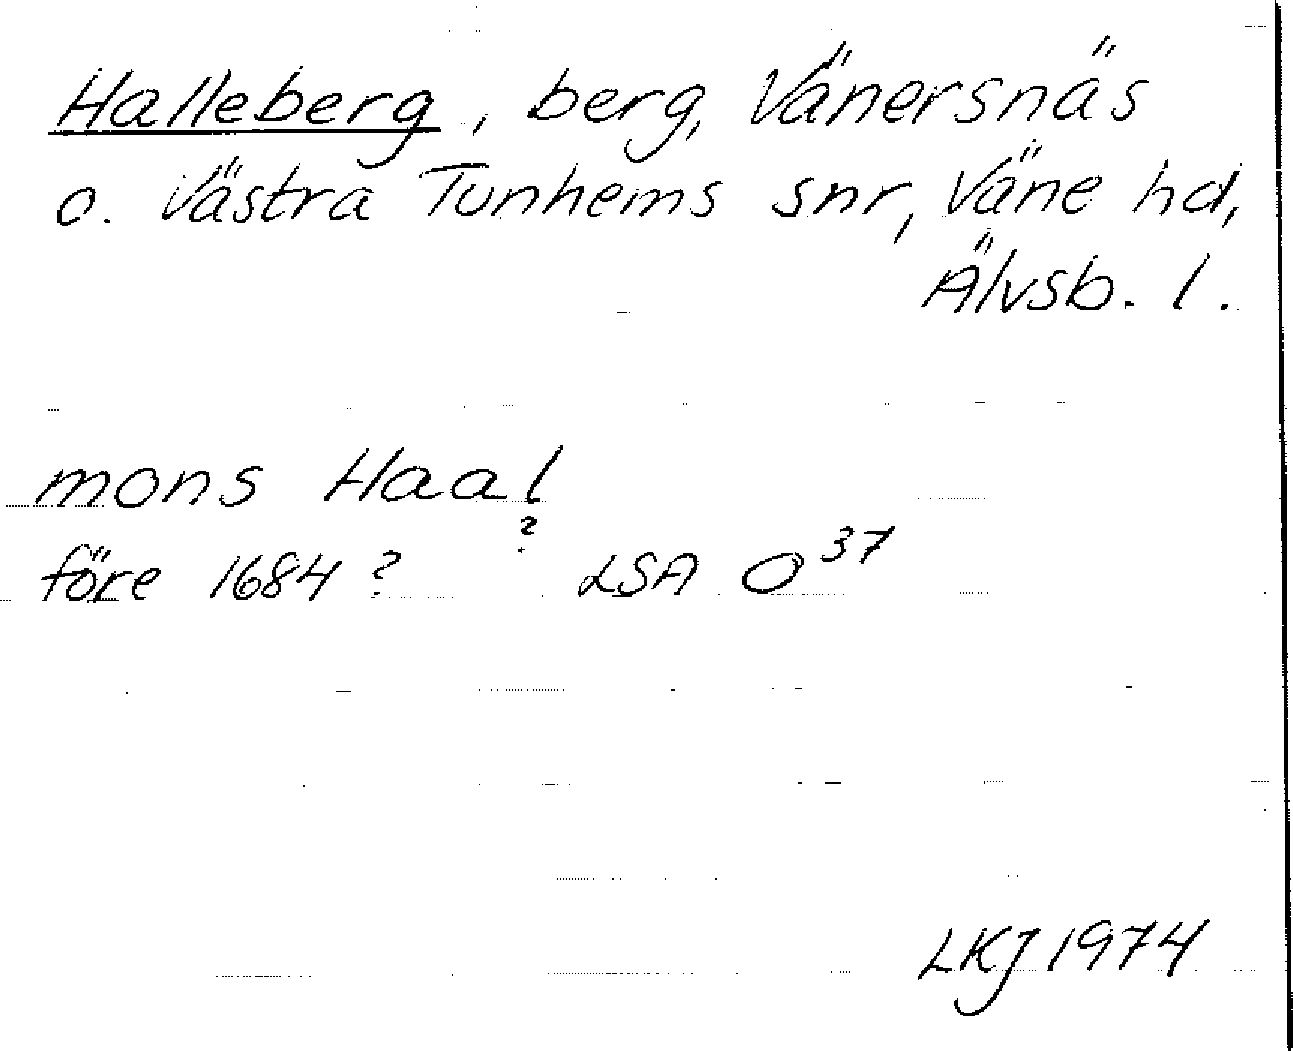 Halleberg, berg, Vänersnäs
o. Västra Tunhems snr, Väne hd,
Älvsb. l.
mons Haal
?
före 1684? LSA O 37
LKJ 1974